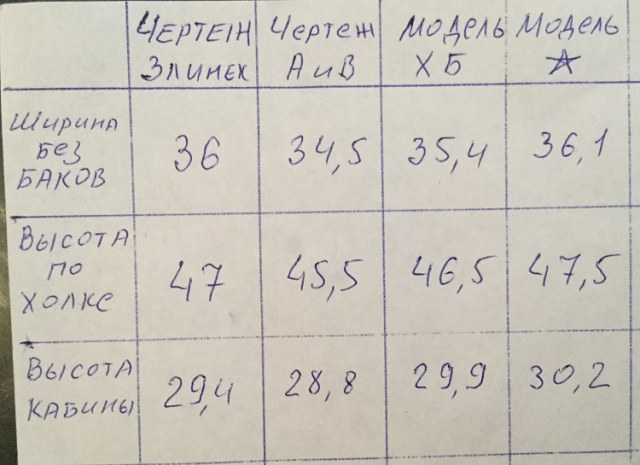 ЧЕРТЕЖ Чертеж Модель Модель
ЗЛИНЕК А и В ХБ ☆
Ширина
без
баков
36 34,5 35,4 36,1
Высота
по
холке
47 45,5 46,5 47,5
Высота
кабины
29,4 28,8 29,9 30,2